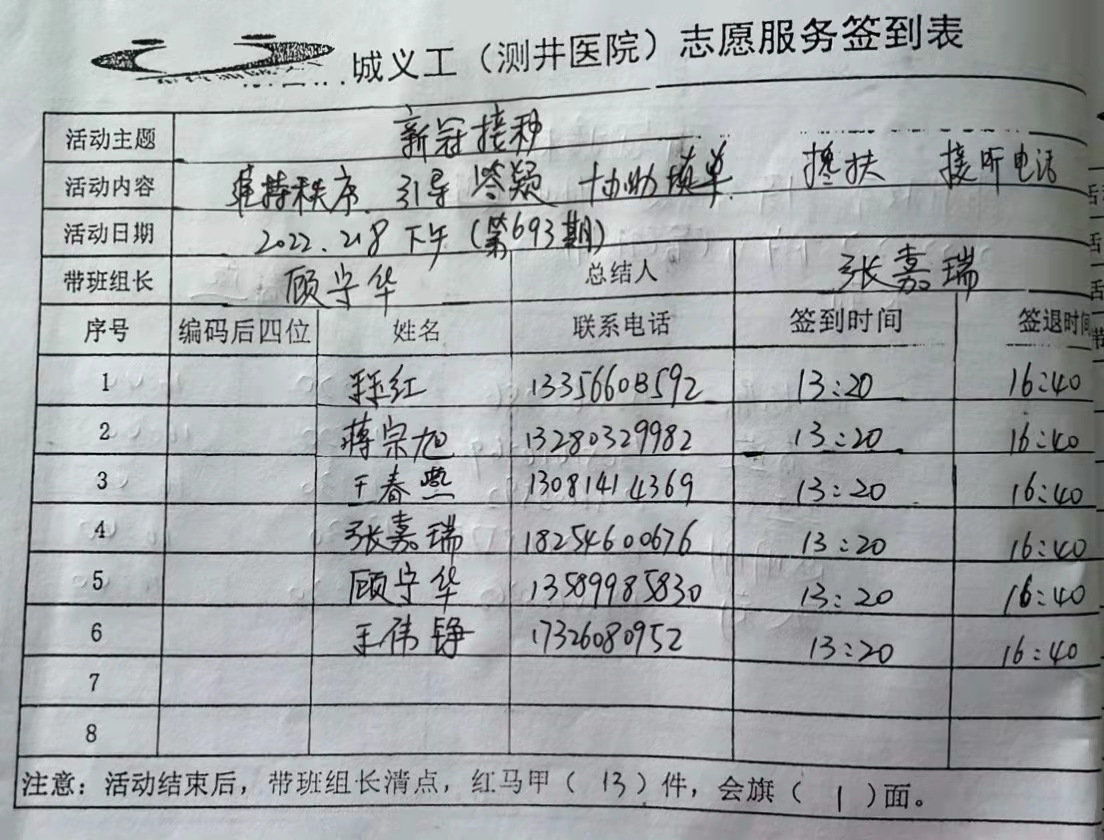 城义工（测井医院）志愿服务签到表
活动主题 新冠接种
活动内容 维持秩序、引导 答疑 协助填单 搀扶 接听电话
活动日期 2022.2.8 下午（第693期）
带班组长 顾宁华 总结人 张嘉瑞
序号 编码后四位 姓名 联系电话 签到时间 签退时间
1 红 13356603592 13:20 16:40
2 蒋宗旭 13280329982 13:20 16:40
3 王春燕 13081414369 13:20 16:40
4 张嘉瑞 18254600676 13:20 16:40
5 顾宁华 13589985830 13:20 16:40
6 王伟铮 17326080952 13:20 16:40
7
8
注意：活动结束后，带班组长清点，红马甲（ 13 ）件，会旗（ 1 ）面。